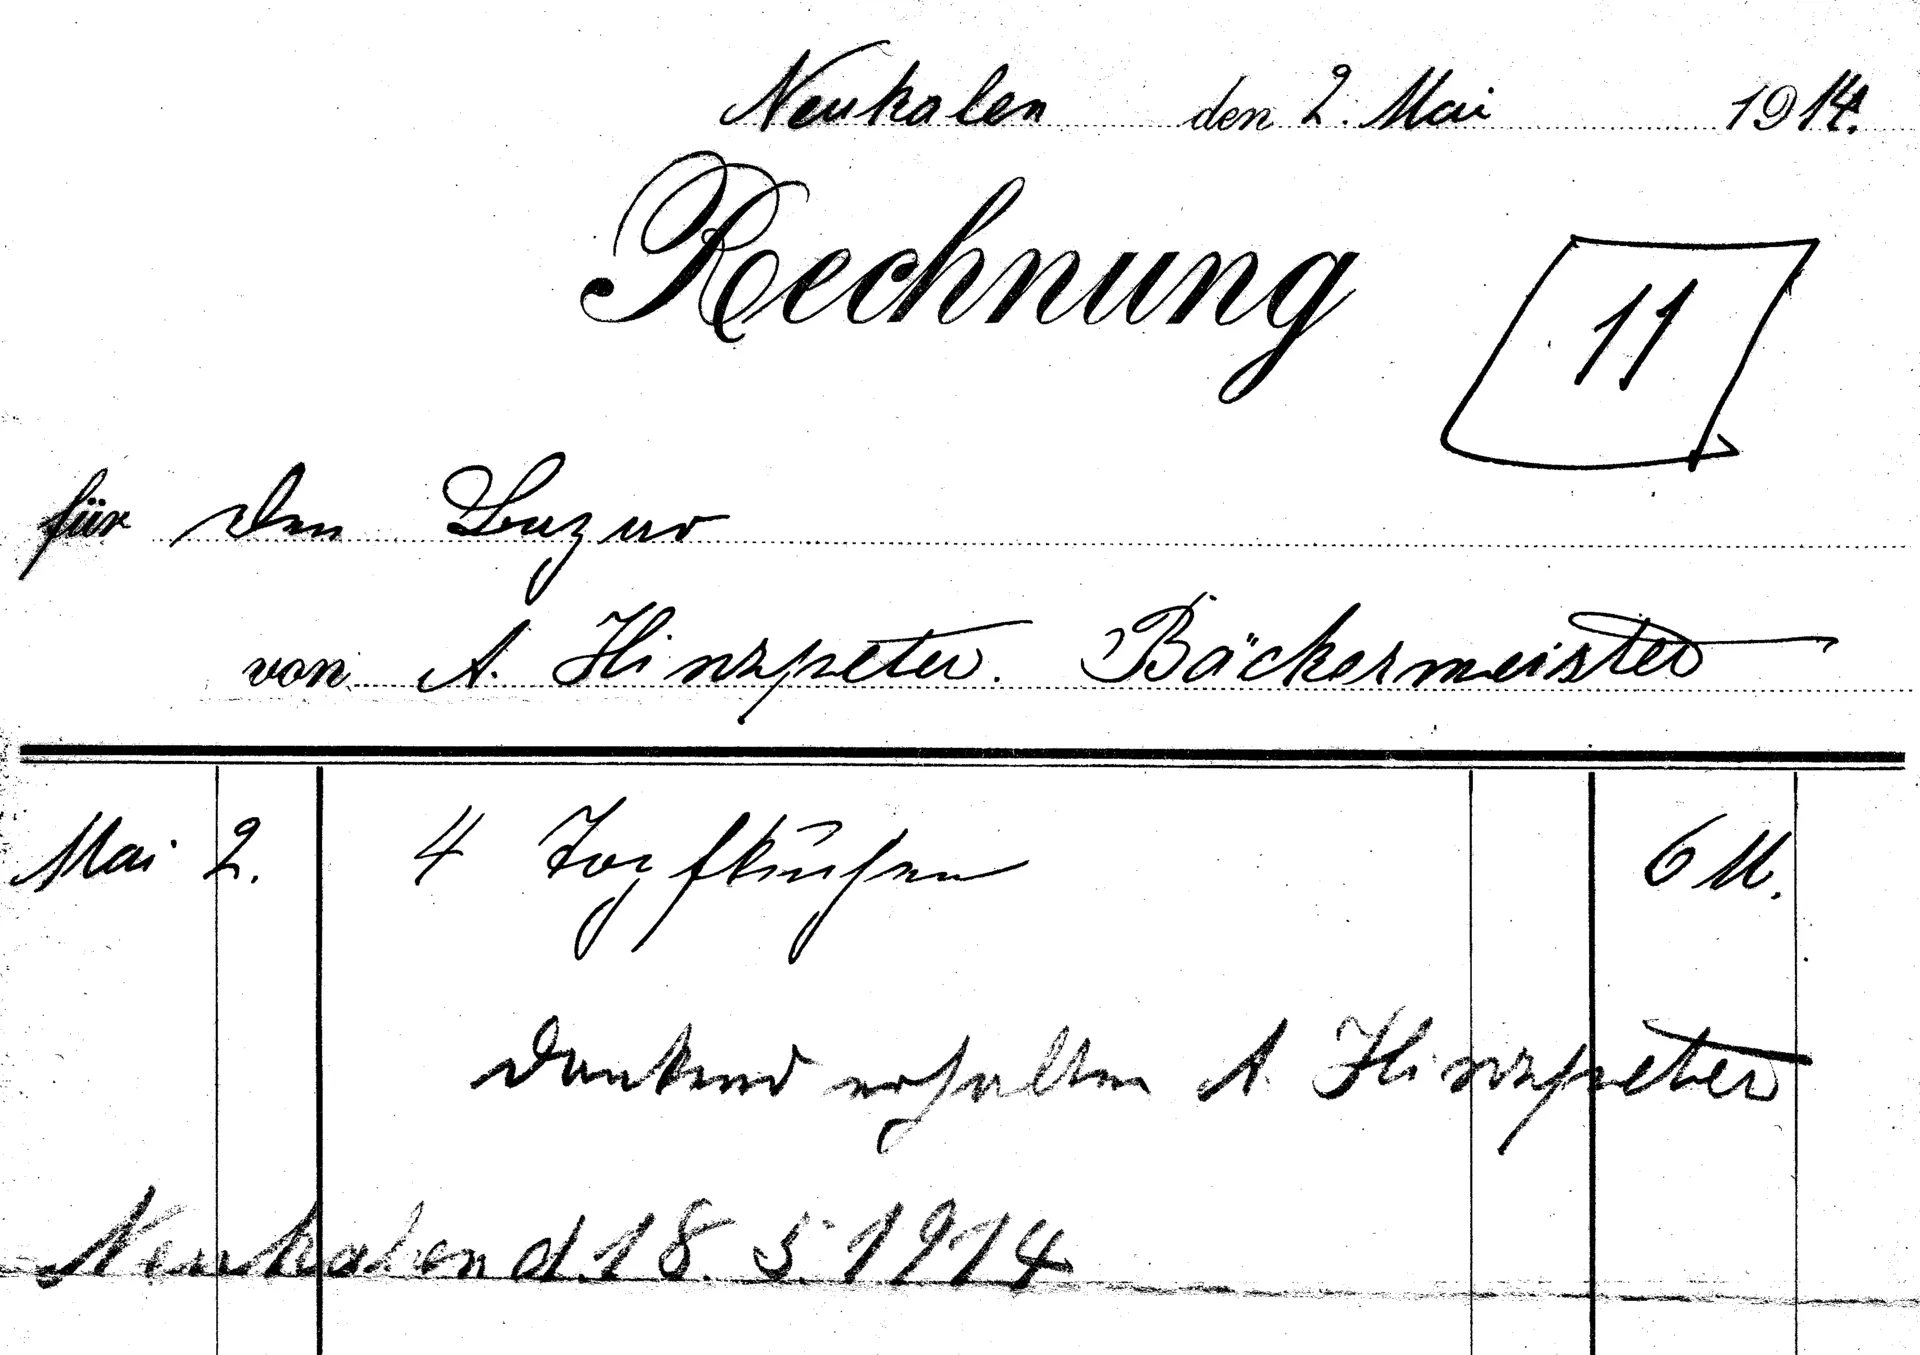 Neukalen den 2. Mai 1914.
Rechnung
11
für den Bazar
von A. Hinzpeter. Bäckermeister
Mai 2. 4 Topfkuchen 6 M.
Dankend erhalten A. Hinzpeter
Neukalen d. 18. 5. 1914